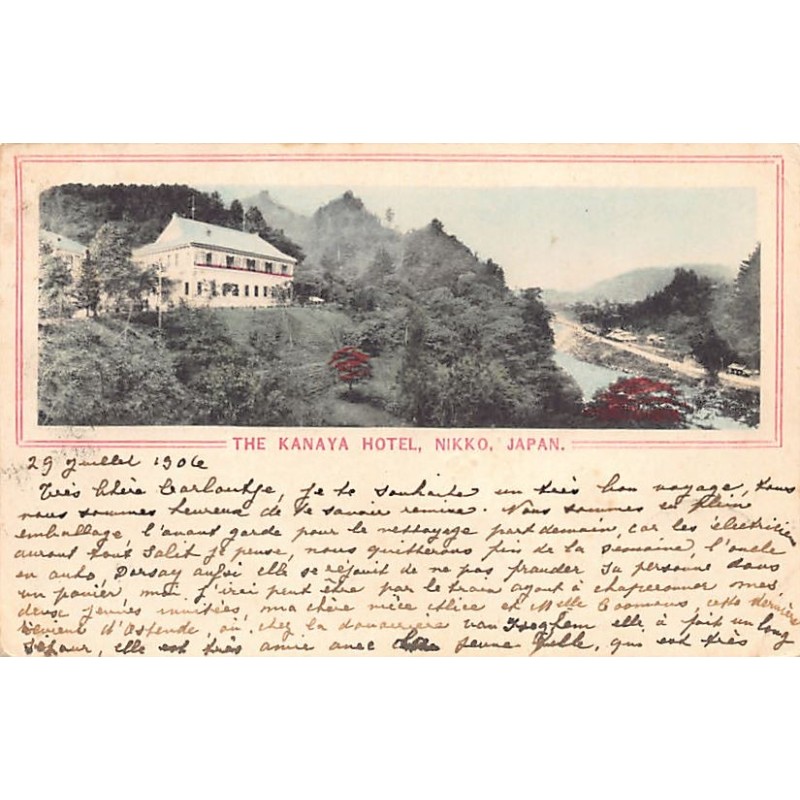 THE KANAYA HOTEL, NIKKO, JAPAN.
29 Juillet 1906
Très Chère Carloutje, je te souhaite un très bon voyage, tous
nous sommes heureux de te savoir remise. Nous sommes en plein
emballage, l'avant garde pour le nettoyage part demain, car les électriciens
auront tout Salit je pense, nous quitterons fin de la semaine, l'oncle
en auto, aussi elle se réjouit de ne pas frauder sa personne dans
un panier, moi j'irai peut être par le train ayant à chaperonner mes
deux jeunes invitées, ma chère nièce et Melle Coomans, cette dernière
revient d'Ostende, où chez la douairière van Iseghem elle à fait un long
Séjour, elle est très amie avec jeune fille, qui est très